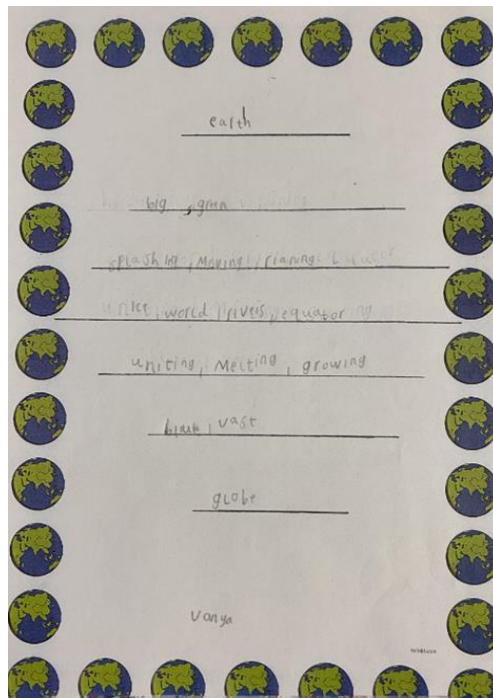 earth
big, green
splashing, moving,
world, rivers, equator
uniting, melting, growing
vast
globe
Vanya